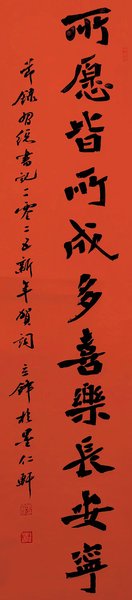 所愿皆所成多喜樂長安寧
节錄習總書记二零二五新年贺词立鋒於墨仁軒